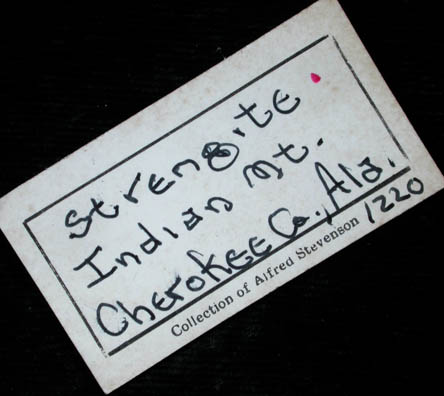 Strengite.
Indian Mt.
Cherokee Co., Ala.
1220
Collection of Alfred Stevenson